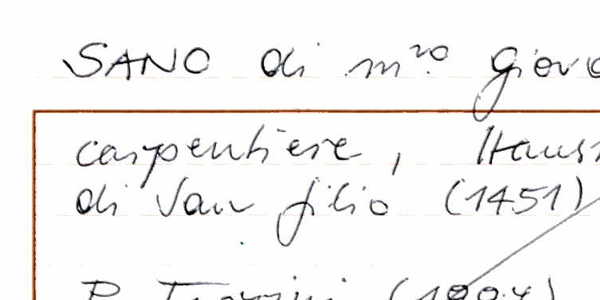 SANO di m^ro. Giov
carpentiere,
di San Gilio (1451)
P.